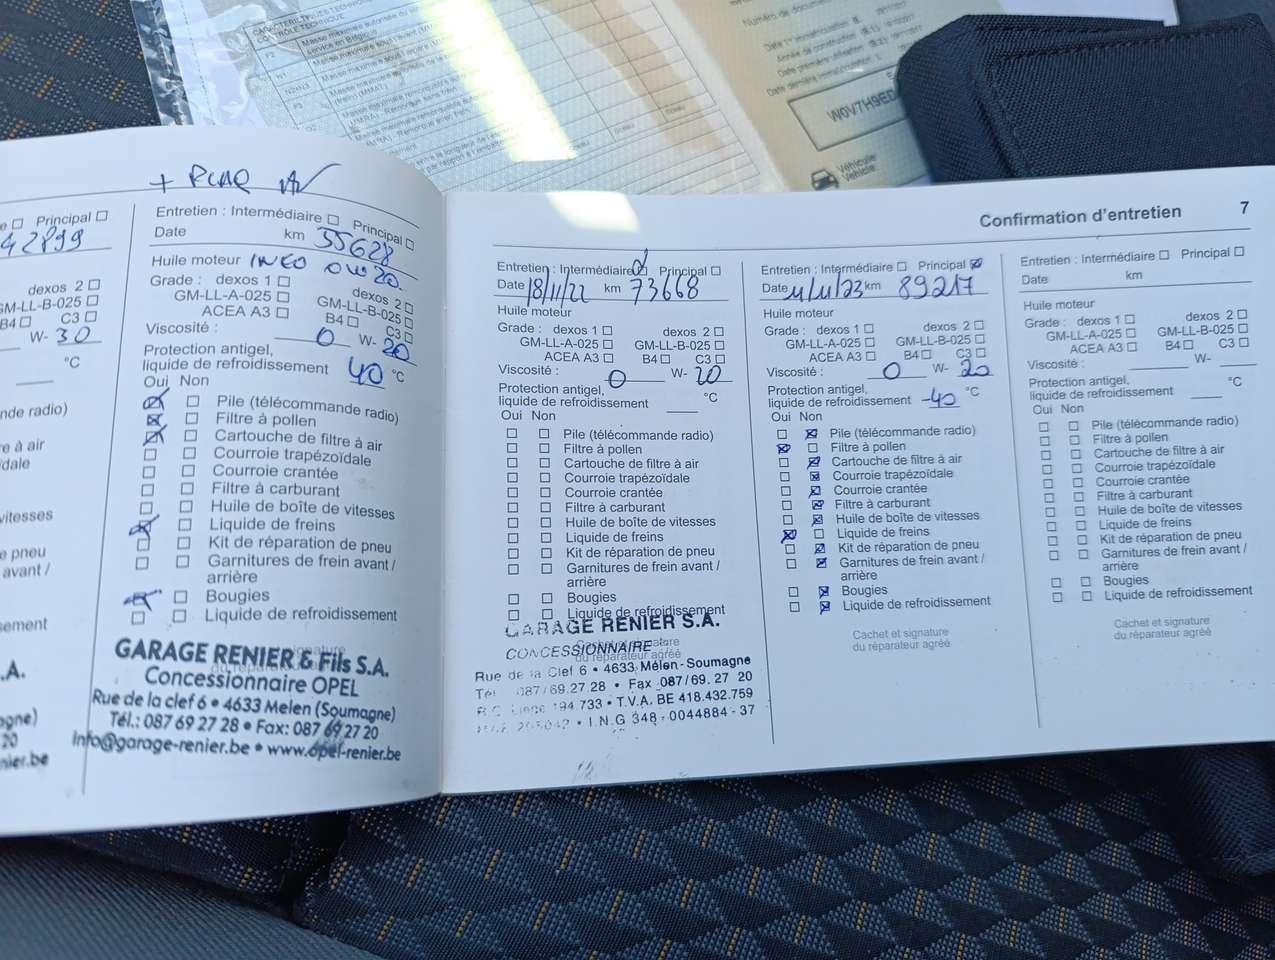 CARACTÉRISTIQUES TECHNIQUES
CONTRÔLE TECHNIQUE
service en Belgique
Numéro de document
W0V7H9ED
Véhicule
Vehicle
Principal
42899
dexos 2
GM-LL-B-025
B4 C3
W- 30
°C
+ PLAQ AV
Entretien : Intermédiaire Principal
Date km 55628
Huile moteur INEO 0W20.
Grade : dexos 1 dexos 2
GM-LL-A-025 GM-LL-B-025
ACEA A3 B4 C3
Viscosité : 0 W- 20
Protection antigel,
liquide de refroidissement 40 °C
Oui Non
Pile (télécommande radio)
Filtre à pollen
Cartouche de filtre à air
Courroie trapézoïdale
Courroie crantée
Filtre à carburant
Huile de boîte de vitesses
Liquide de freins
Kit de réparation de pneu
Garnitures de frein avant /
arrière
Bougies
Liquide de refroidissement
GARAGE RENIER & Fils S.A.
Concessionnaire OPEL
Rue de la clef 6 • 4633 Melen (Soumagne)
Tél.: 087 69 27 28 • Fax: 087 69 27 20
info@garage-renier.be • www.opel-renier.be
Confirmation d'entretien 7
Entretien : Intermédiaire Principal
Date 18/11/22 km 73668
Huile moteur
Grade : dexos 1 dexos 2
GM-LL-A-025 GM-LL-B-025
ACEA A3 B4 C3
Viscosité : 0 W- 20
Protection antigel,
liquide de refroidissement °C
Oui Non
Pile (télécommande radio)
Filtre à pollen
Cartouche de filtre à air
Courroie trapézoïdale
Courroie crantée
Filtre à carburant
Huile de boîte de vitesses
Liquide de freins
Kit de réparation de pneu
Garnitures de frein avant /
arrière
Bougies
Liquide de refroidissement
Cachet et signature
du réparateur agréé
GARAGE RENIER S.A.
CONCESSIONNAIRE
Rue de la Clef 6 • 4633 Melen - Soumagne
Tél 087/69.27.28 • Fax 087/69.27 20
194 733 • T.V.A. BE 418.432.759
I.N.G 348-0044884-37
Entretien : Intermédiaire Principal
Date km 89217
Huile moteur
Grade : dexos 1 dexos 2
GM-LL-A-025 GM-LL-B-025
ACEA A3 B4 C3
Viscosité : 0 W- 20
Protection antigel,
liquide de refroidissement -40 °C
Oui Non
Pile (télécommande radio)
Filtre à pollen
Cartouche de filtre à air
Courroie trapézoïdale
Courroie crantée
Filtre à carburant
Huile de boîte de vitesses
Liquide de freins
Kit de réparation de pneu
Garnitures de frein avant /
arrière
Bougies
Liquide de refroidissement
Cachet et signature
du réparateur agréé
Entretien : Intermédiaire Principal
Date km
Huile moteur
Grade : dexos 1 dexos 2
GM-LL-A-025 GM-LL-B-025
ACEA A3 B4 C3
Viscosité : W-
Protection antigel,
liquide de refroidissement °C
Oui Non
Pile (télécommande radio)
Filtre à pollen
Cartouche de filtre à air
Courroie trapézoïdale
Courroie crantée
Filtre à carburant
Huile de boîte de vitesses
Liquide de freins
Kit de réparation de pneu
Garnitures de frein avant /
arrière
Bougies
Liquide de refroidissement
Cachet et signature
du réparateur agréé